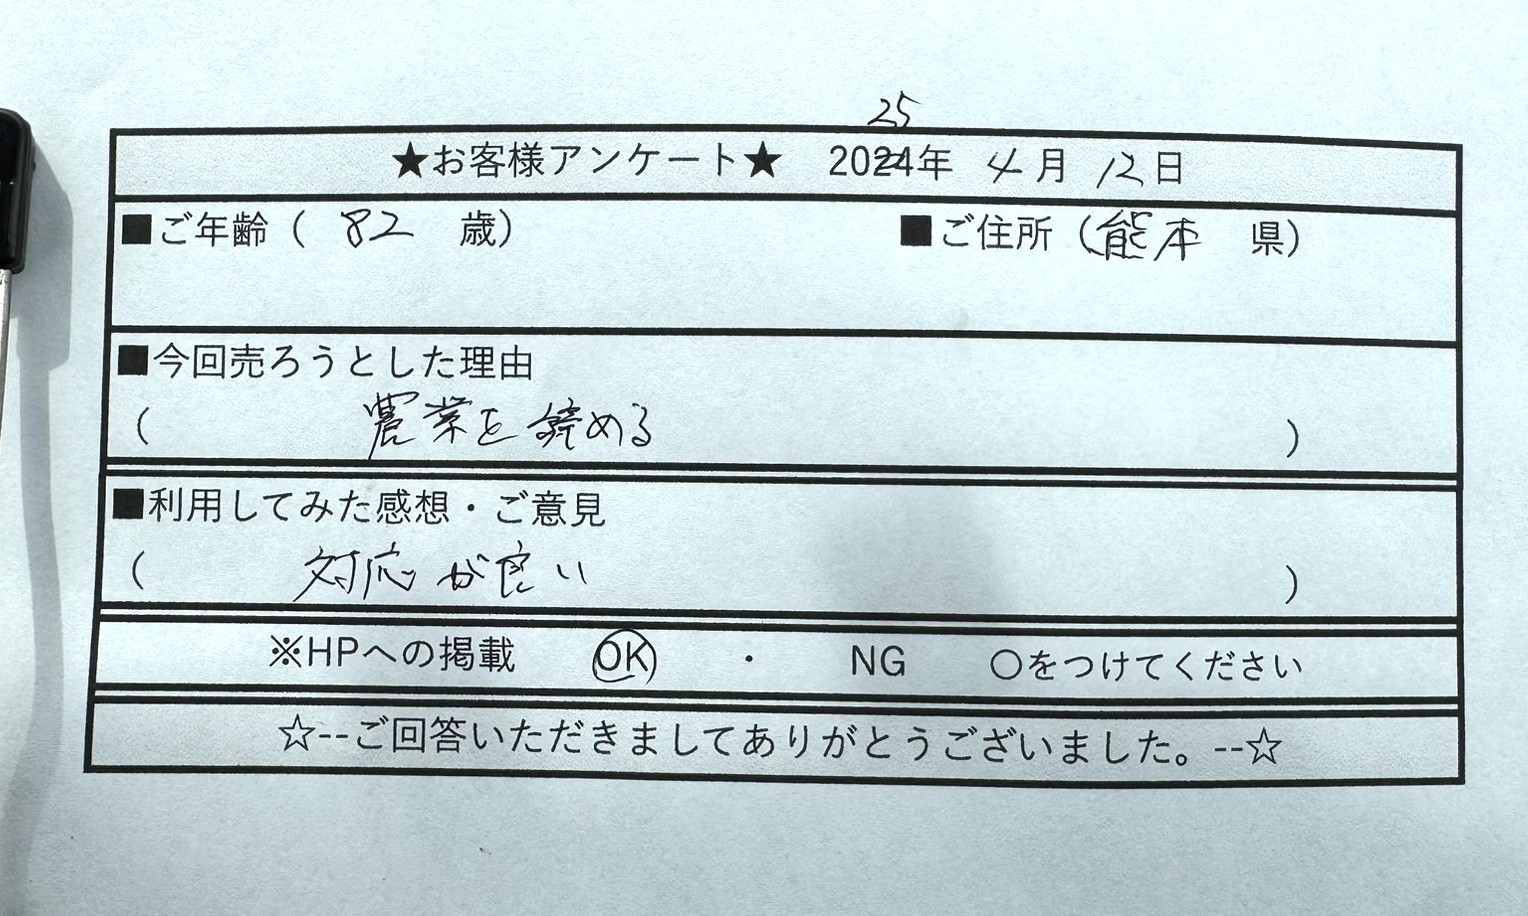 25
★お客様アンケート★ 2024年 4月 12日
■ご年齢( 82 歳) ■ご住所(熊本 県)
■今回売ろうとした理由
( 農業を諦める )
■利用してみた感想・ご意見
( 対応が良い )
※HPへの掲載 OK ・ NG ○をつけてください
☆--ご回答いただきましてありがとうございました。--☆